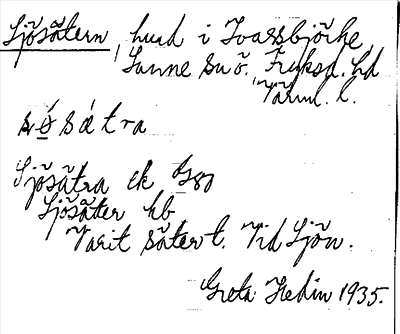 Sjösätern, hund i Ivarsbjörke,
Sunne sn ö. Fryksd. hd
Värml. l.
sø̀sátra
Sjösätra ek G80
Sjösäter hb
Varit säter t. Vid Sjön.
Greta Hedin 1935.